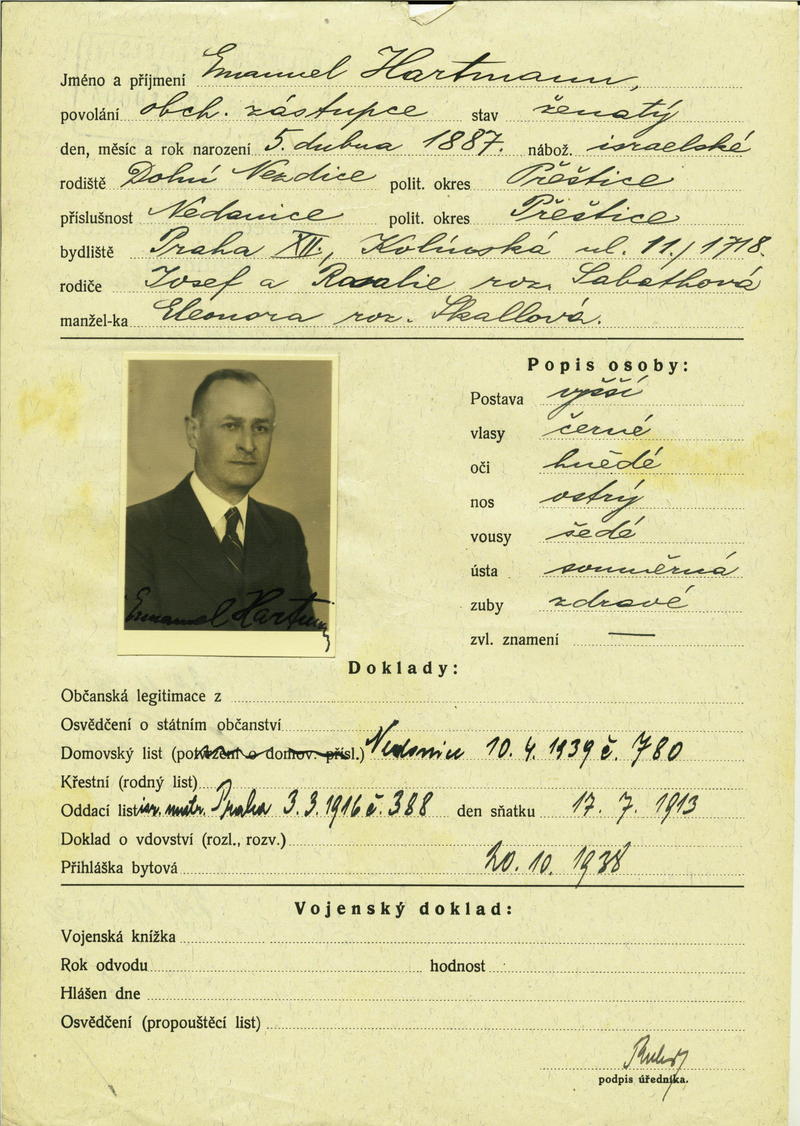 Jméno a příjmení Emanuel Hartmann,
povolání obch. zástupce stav ženatý
den, měsíc a rok narození 5. dubna 1887. nábož. israelské
rodiště Dolní Nezdice polit. okres Přeštice
příslušnost Nedanice polit. okres Přeštice
bydliště Praha XII., Kolínská ul. 11./1718.
rodiče Josef a Rosalie roz. Sabathová
manžel-ka Eleonora roz. Skallová.
Popis osoby:
Postava vyšší
vlasy černé
oči hnědé
nos ostrý
vousy šedé
ústa souměrná
zuby zdravé
zvl. znamení —
Emanuel Hartmann
Doklady:
Občanská legitimace z
Osvědčení o státním občanství
Domovský list (potvrzení o domov. přísl.) Nedanice 10. 4. 1939 č. 780
Křestní (rodný list)
Oddací list isr. matr. Praha 3. 3. 1916 č. 388 den sňatku 17. 7. 1913
Doklad o vdovství (rozl., rozv.)
Přihláška bytová 20. 10. 1938
Vojenský doklad:
Vojenská knížka
Rok odvodu hodnost
Hlášen dne
Osvědčení (propouštěcí list)
podpis úředníka.